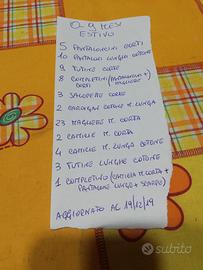 0-9 MESI
ESTIVO
5 PANTALONCINI CORTI
10 PANTALONI LUNGHI COTONE
9 TUTINE CORTE
8 COMPLETINI (PANTALONCINO +
CORTI MAGLIETTA)
3 SALOPETTE CORTE
2 CARDIGAN COTONE M. LUNGA
23 MAGLIETTE M. CORTA
2 CAMICIE M. CORTA
4 CAMICIE M. LUNGA COTONE
3 TUTINE LUNGHE COTONE
1 COMPLETINO (CAMICIA M. CORTA +
PANTALONE LUNGO + SCARPE)
AGGIORNATO AL 19/12/19
subito